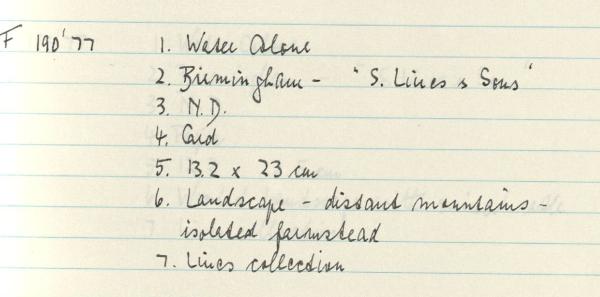 F 190'77 1. Water Colour
2. Birmingham - "S. Lines & Sons"
3. N.D.
4. Card
5. 13.2 x 23 cm
6. Landscape - distant mountains -
isolated farmstead
7. Lines collection